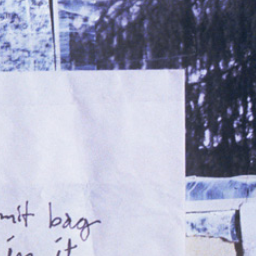 mit bag
in it